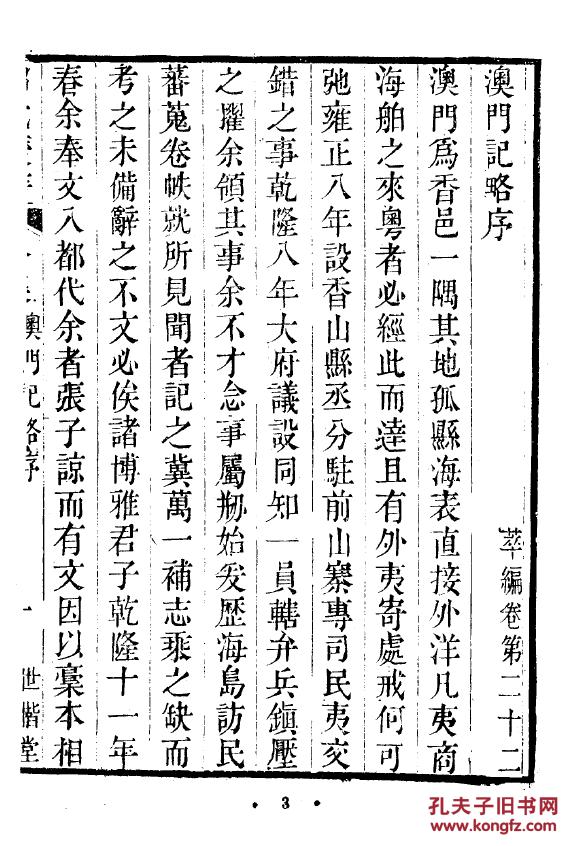 澳門記略序
萃編卷第二十二
澳門爲香邑一隅其地孤縣海表直接外洋凡夷商
海舶之來粵者必經此而達且有外夷寄處戒何可
弛雍正八年設香山縣丞分駐前山寨專司民夷交
錯之事乾隆八年大府議設同知一員轄弁兵鎮壓
之擢余領其事余不才念事屬剙始爰歷海島訪民
蕃蒐卷帙就所見聞者記之冀萬一補志乘之缺而
考之未備辭之不文必俟諸博雅君子乾隆十一年
春余奉文入都代余者張子諒而有文因以稾本相
澳門記略序
一
世楷堂
• 3 •
孔夫子旧书网
www.kongfz.com